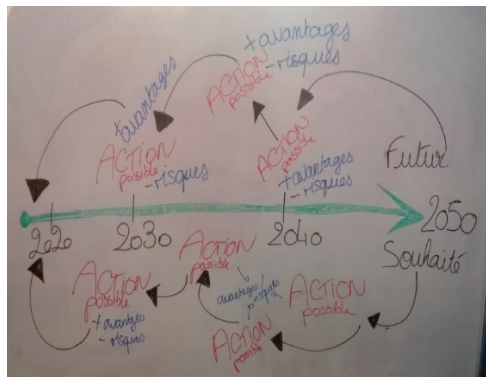 + avantages
- risques
ACTION
possible
+ avantages
ACTION
possible
- risques
ACTION
possible
+ avantages
- risques
Futur
2020
2030
2040
2050
Souhaité
ACTION
possible
+ avantages
- risques
ACTION
possible
avantages/
risques
ACTION
possible
ACTION
possible